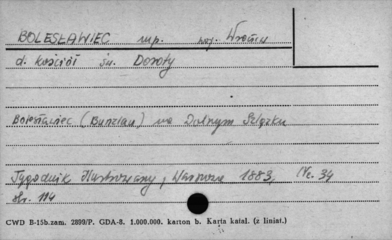 BOLESŁAWIEC mp. woj. Wrocław
d. kościół św. Doroty
Bolesławiec (Bunzlau) na Dolnym Szląsku
Tygodnik Illustrowany, Warszawa 1883, Nr. 34
str. 114
CWD B-15b.zam. 2899/P. GDA-8. 1.000.000. karton b. Karta katal. (z liniat.)